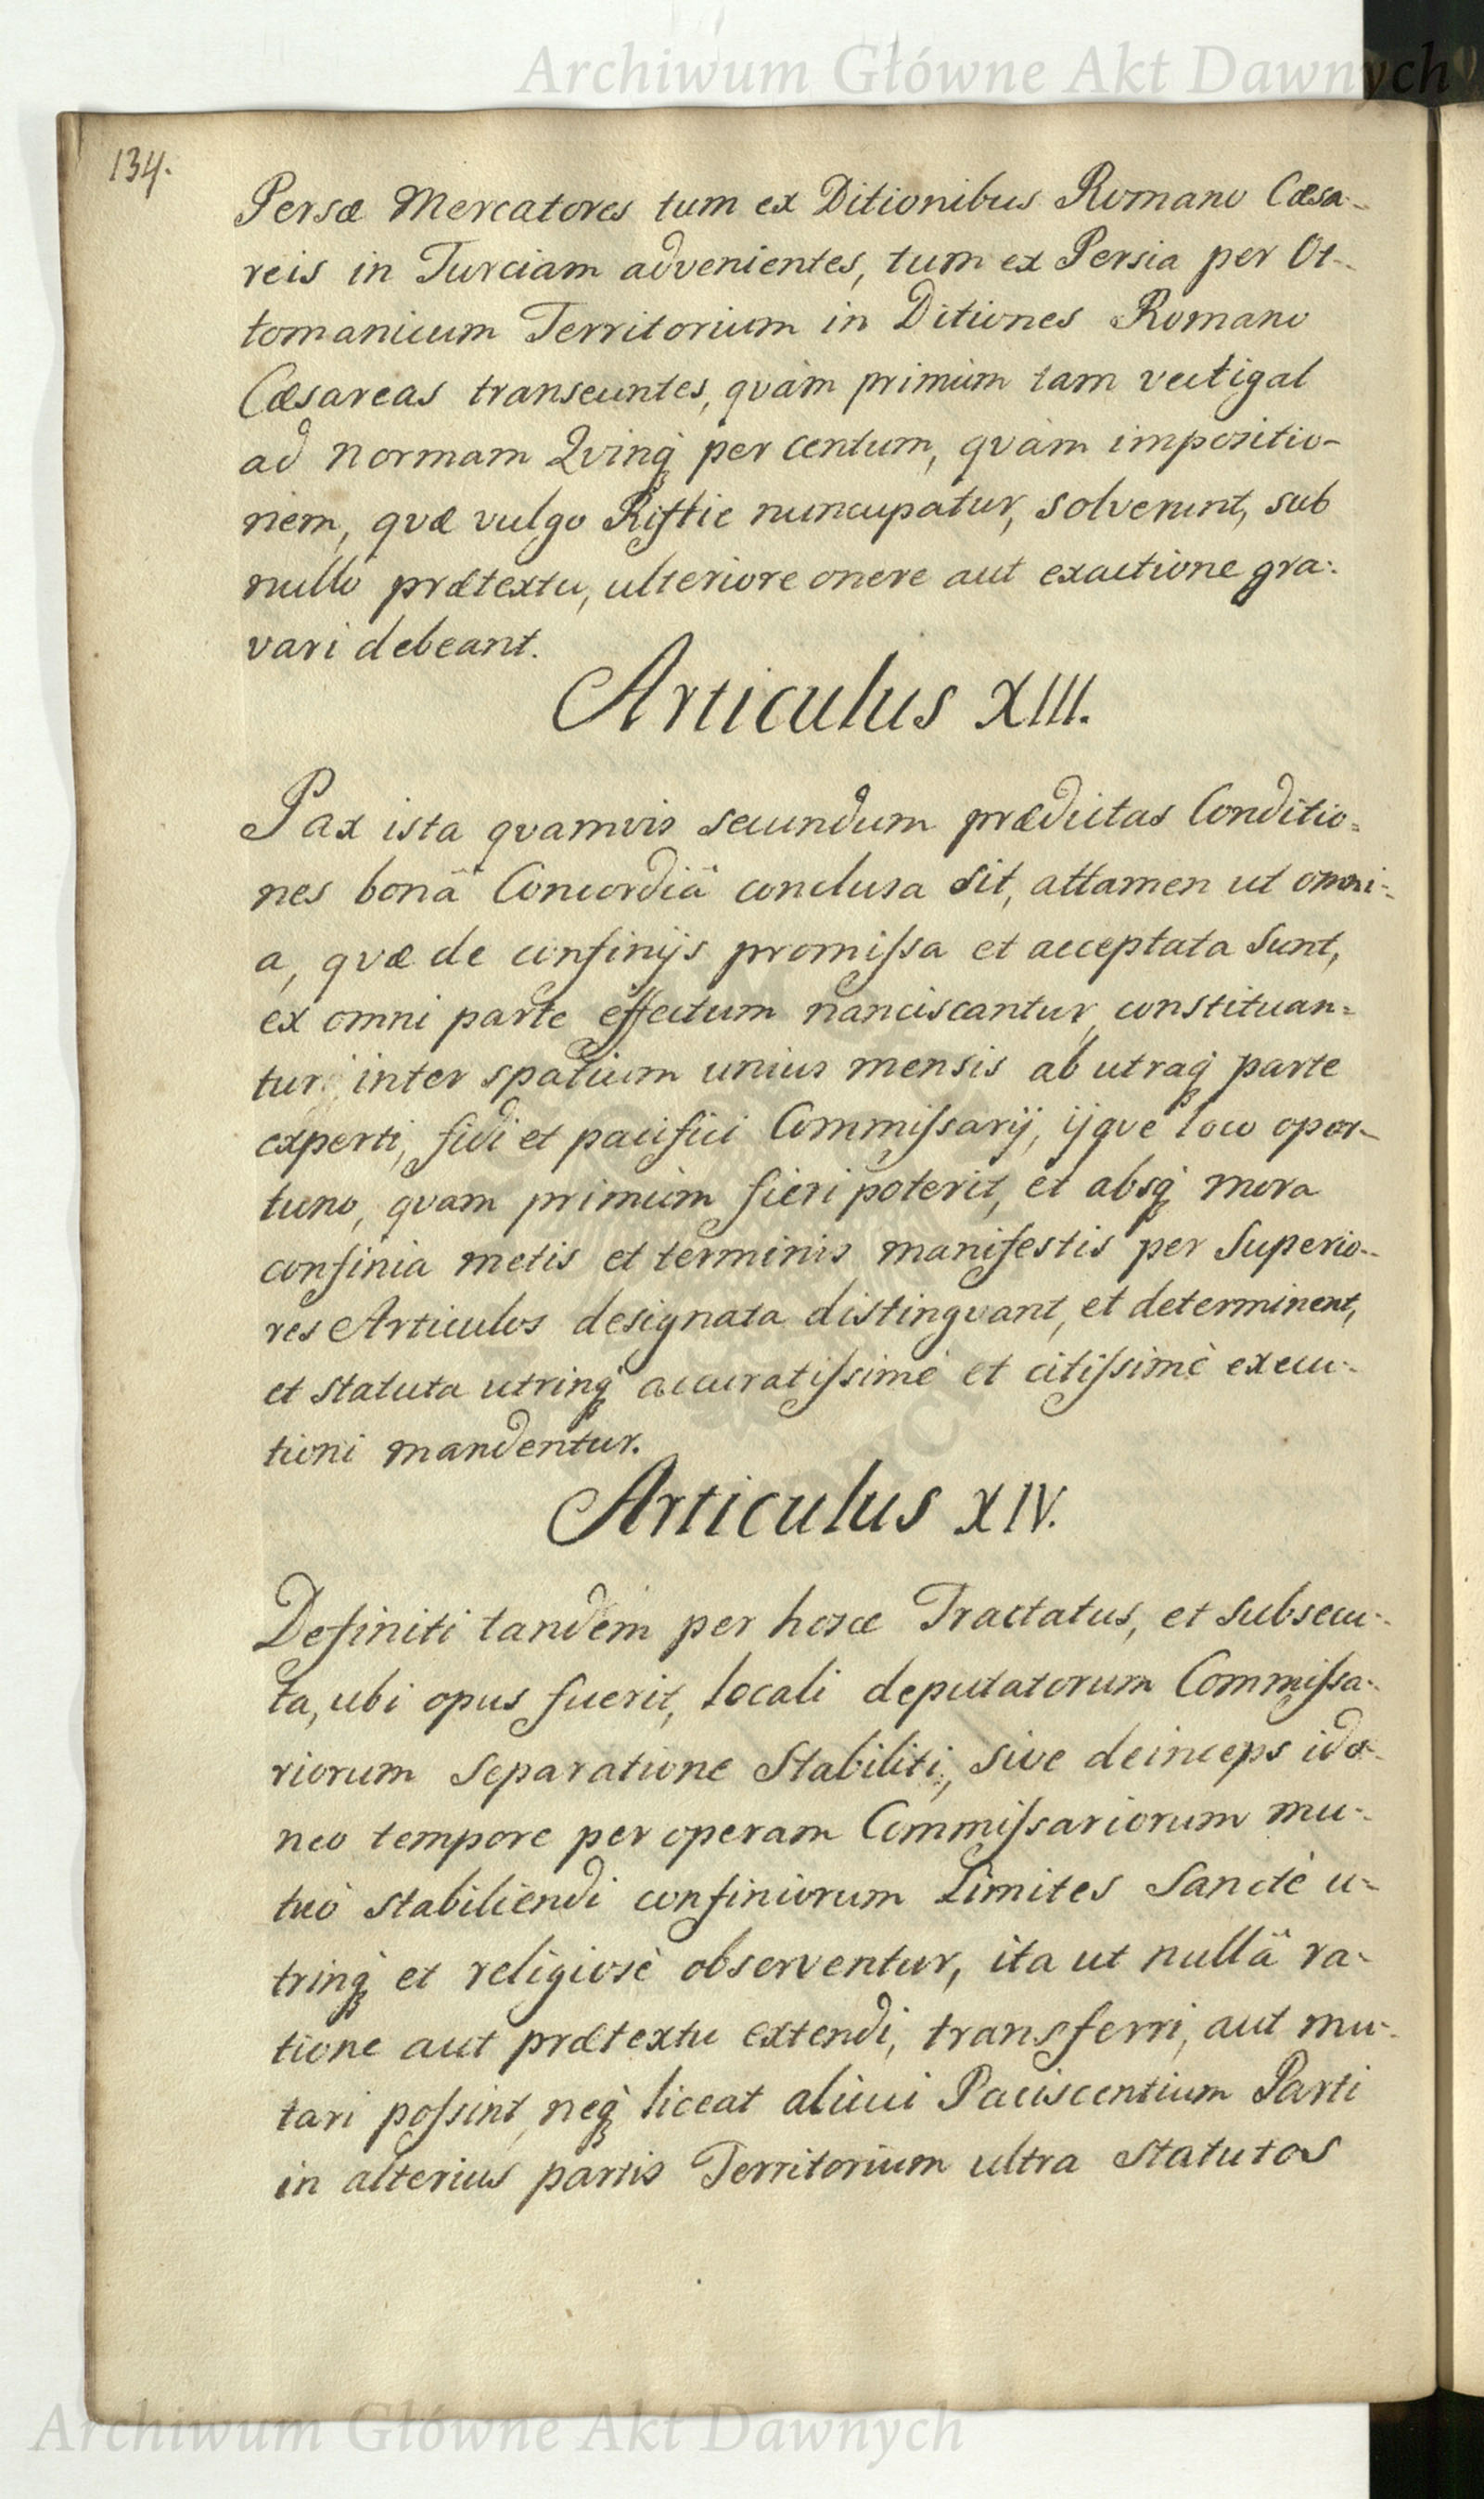 Archiwum Główne Akt Dawnych
134.
Persæ Mercatores tum ex Ditionibus Romano Cæsa-
reis in Turciam advenientes, tum ex Persia per Ot-
tomanicum Territorium in Ditiones Romano
Cæsareas transeuntes, qvàm primùm tam vectigal
ad normam Qvinq́ per centum, qvàm impositio-
nem, qvæ vulgo Riftie nuncupatur, solverint, sub
nullo prætextu, ulteriore onere aut exactione gra-
vari debeant.
Articulus XIII.
Pax ista qvamvis secundum prædictas Conditio=
nes bonâ Concordiâ conclusa sit, attamen ut omni-
a, qvæ de confinijs promiſsa et acceptata sunt,
ex omni parte effectum nanciscantur, constituan=
tur inter spatium unius mensis ab utraq́ parte
experti, fidi et pacifici Commiſsarij, ijqve loco opor-
tuno, qvam primùm fieri poterit, et absq́ mora
confinia metis et terminis manifestis per Superio-
res Articulos designata distingvant, et determinent,
et statuta utrinq́ accuratiſsimè et citiſsimè execu-
tioni mandentur.
Articulus XIV.
Definiti tandem per hosce Tractatus, et subsecu-
ta, ubi opus fuerit, locali deputatorum Commiſsa-
riorum separatione Stabiliti, sive deinceps ido-
neo tempore per operam Commiſsariorum mu-
tuò stabiliendi confiniorum Limites Sanctè u-
trinq́ et religiosè observentur, ita ut nullâ ra-
tione aut prætextu extendi, transferri, aut mu-
tari poſsint, neq́ liceat alicui Paciscentium Parti
in alterius partis Territorium ultra statutos
Archiwum Główne Akt Dawnych